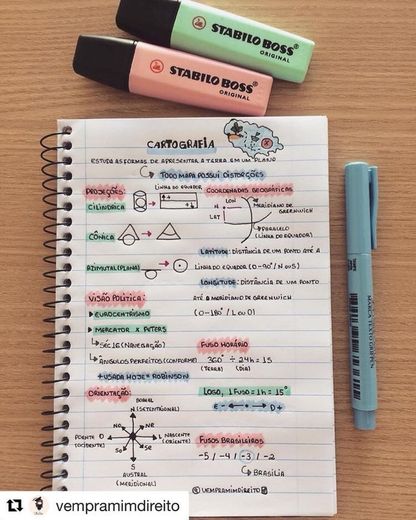 STABILO BOSS
ORIGINAL
STABILO BOSS
ORIGINAL
CARTOGRAFIA
ESTUDA AS FORMAS DE APRESENTAR A TERRA EM UM PLANO
TODO MAPA POSSUI DISTORÇÕES
PROJEÇÕES:
LINHA DO EQUADOR
CILÍNDRICA
CÔNICA
AZIMUTAL (PLANA)
COORDENADAS GEOGRÁFICAS
LON
N
LAT
MERIDIANO DE GREENWICH
PARALELO
(LINHA DO EQUADOR)
LATITUDE: DISTÂNCIA DE UM PONTO ATÉ A
LINHA DO EQUADOR (0-90°/N OU S)
LONGITUDE: DISTÂNCIA DE UM PONTO
ATÉ O MERIDIANO DE GREENWICH
(0-180°/L OU O)
VISÃO POLÍTICA:
EUROCENTRISMO
MERCATOR X PETERS
SÉC 16 (NAVEGAÇÃO)
ÂNGULOS PERFEITOS (CONFORME)
+ USADA HOJE = ROBINSON
FUSO HORÁRIO
360° ÷ 24h = 15
(TERRA) (DIA)
LOGO, 1 FUSO = 1h = 15°
E - D+
ORIENTAÇÃO:
BOREAL
N (SETENTRIONAL)
NO
NE
POENTE O
(OCIDENTE)
L NASCENTE
(ORIENTE)
SO
SE
S
AUSTRAL
(MERIDIONAL)
FUSOS BRASILEIROS
-5 / -4 / -3 / -2
BRASÍLIA
@VEMPRAMIMDIREITO
MARCA TEXTO GRIFPEN
vempramimdireito